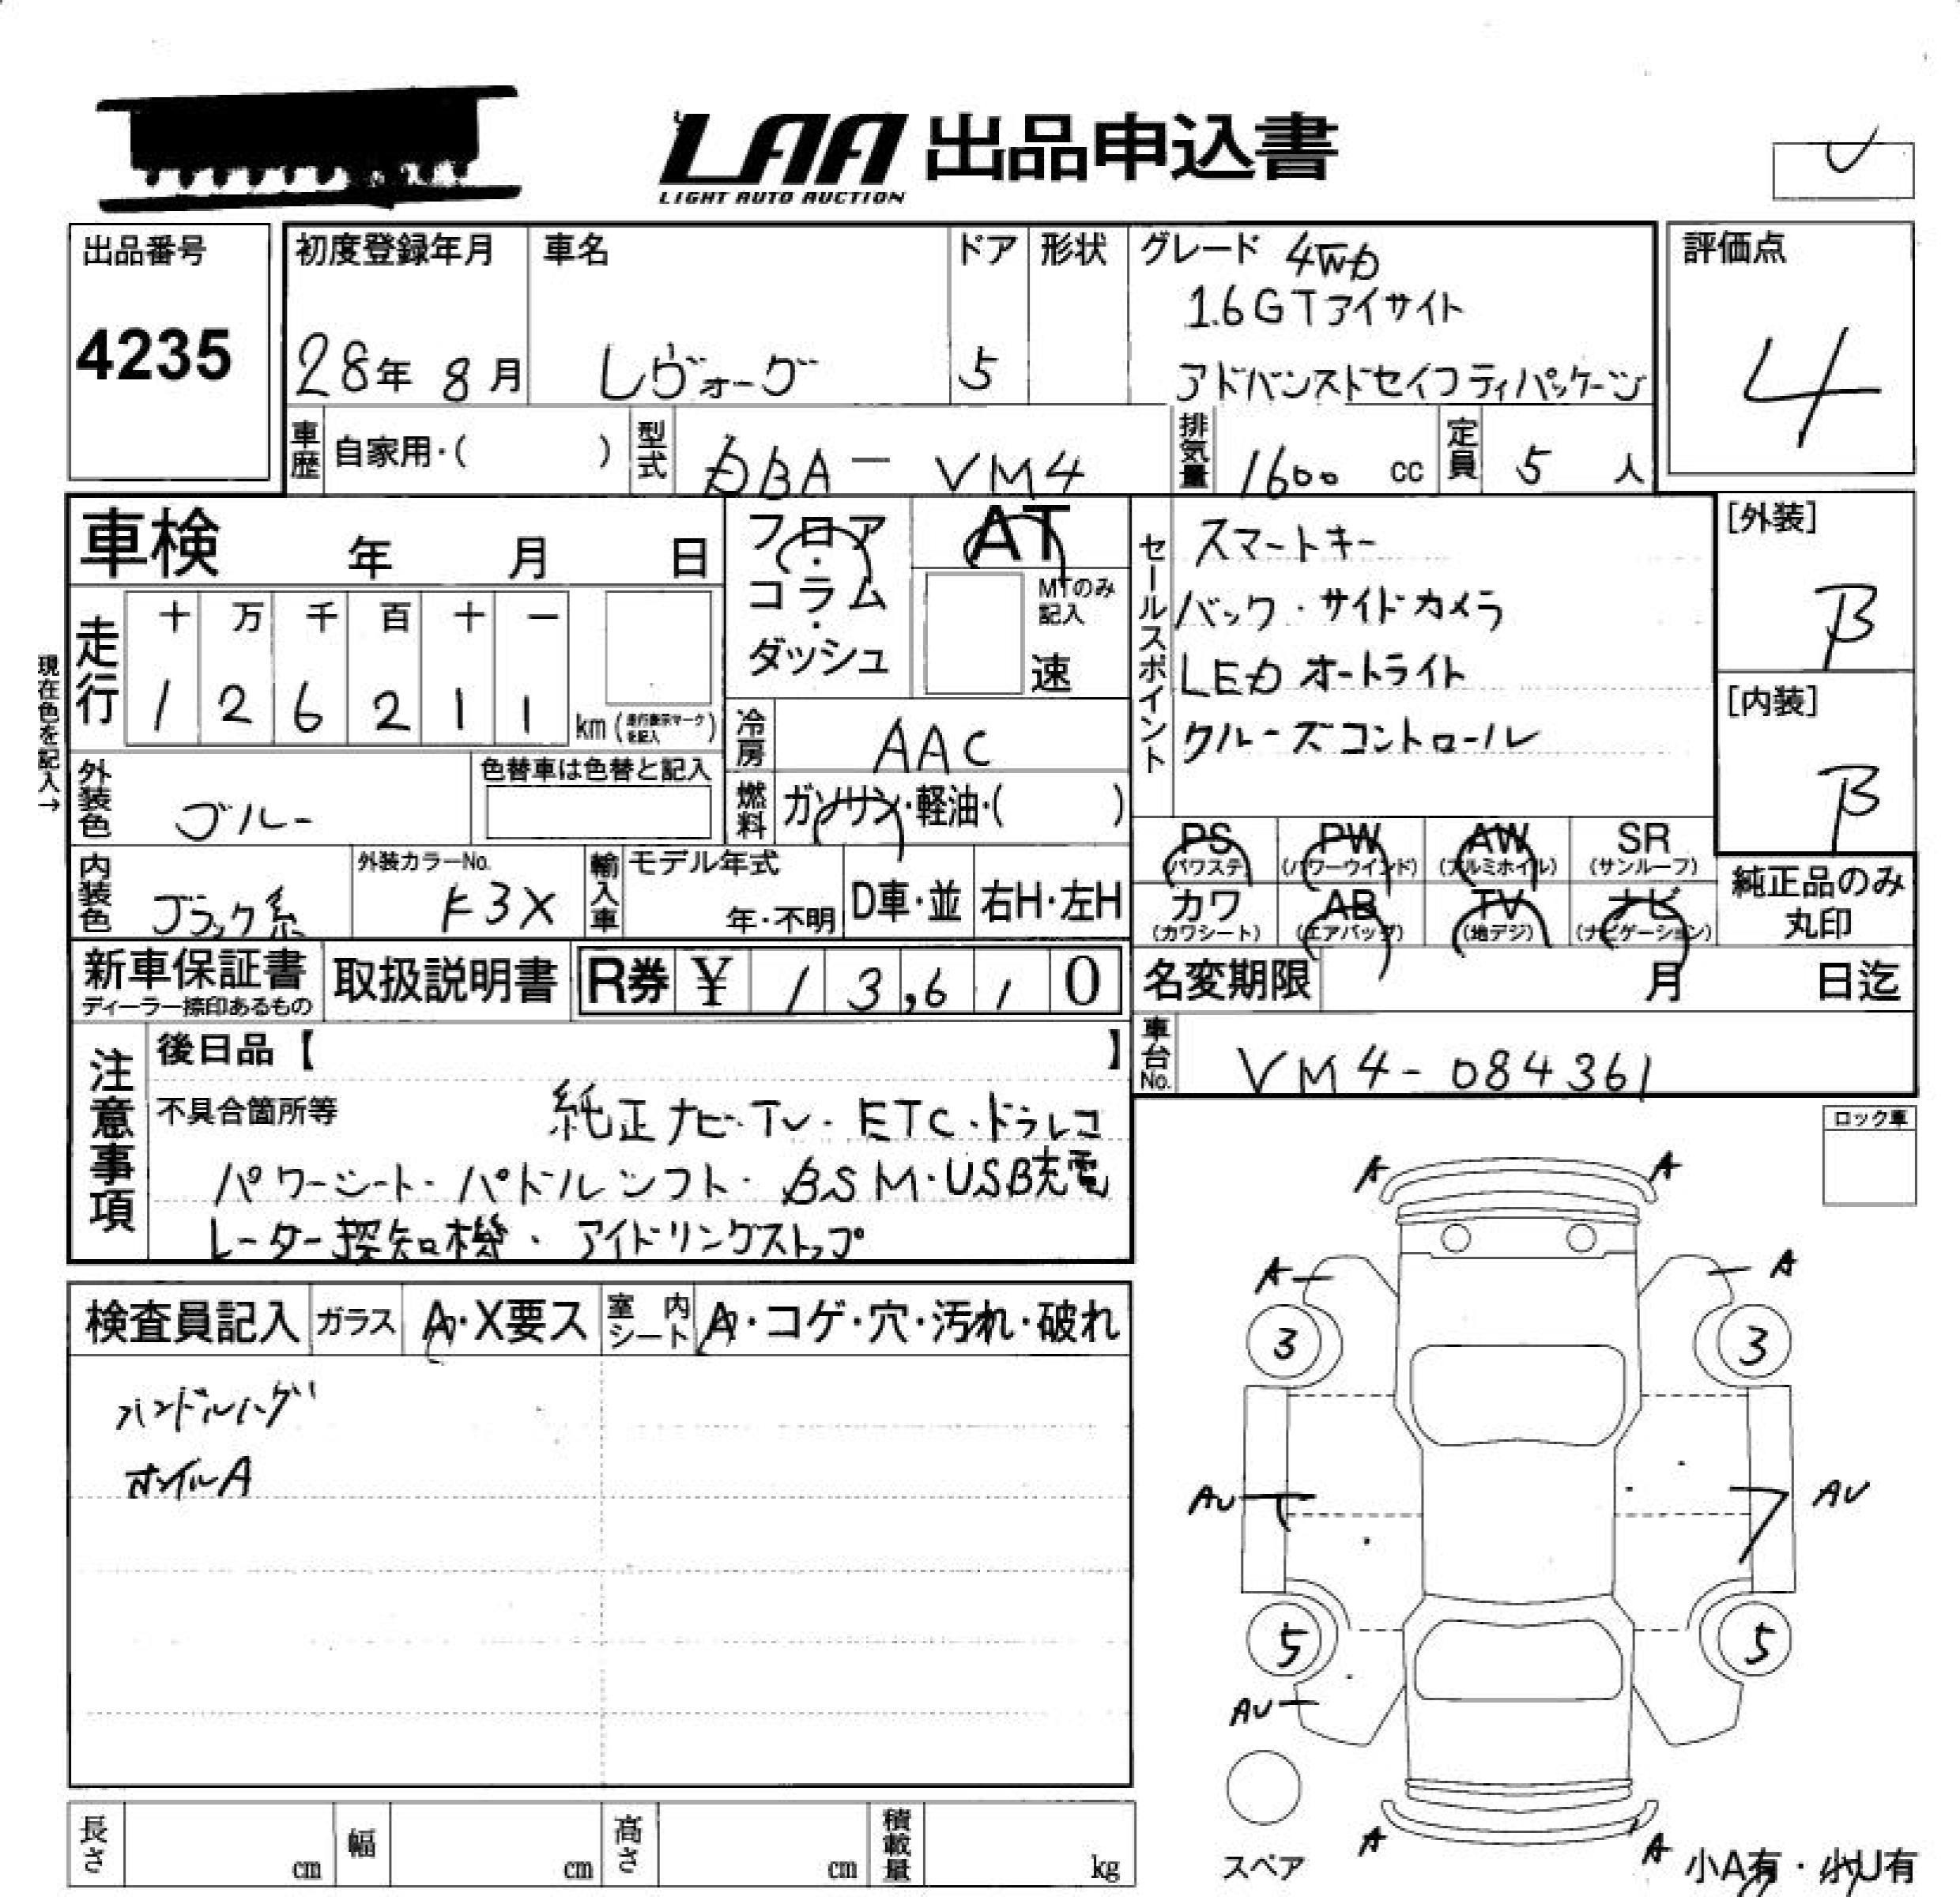 LAA 出品申込書
LIGHT AUTO AUCTION
出品番号
4235
初度登録年月
28年 8月
車名
レヴォーグ
ドア
5
形状
グレード 4WD
1.6GTアイサイト
アドバンスドセイフティパッケージ
評価点
4
車歴 自家用・( )
型式 DBA－VM4
排気量 1600 cc
定員 5 人
車検 年 月 日
フロア・コラム・ダッシュ
AT
MTのみ記入
速
セールスポイント
スマートキー
バック・サイドカメラ
LED オートライト
クルーズコントロール
[外装]
B
[内装]
B
現在色を記入→
走行
十 万 千 百 十 一
1 2 6 2 1 1 km (走行表示マークを記入)
冷房 AAC
燃料 ガソリン・軽油・( )
外装色 ブルー
色替車は色替と記入
内装色 ブラック系
外装カラーNo. K3X
輸入車 モデル年式 年・不明
D車・並
右H・左H
PS (パワステ)
PW (パワーウインド)
AW (アルミホイル)
SR (サンルーフ)
カワ (カワシート)
AB (エアバッグ)
TV (地デジ)
ナビ (ナビゲーション)
純正品のみ丸印
新車保証書
ディーラー捺印あるもの
取扱説明書
R券 ¥ 13,610
名変期限 月 日迄
車台No. VM4-084361
注意事項
後日品【 】
不具合箇所等 純正ナビ・TV・ETC・ドラレコ
パワーシート・パドルシフト・BSM・USB充電
レーダー探知機・アイドリングストップ
ロック車
検査員記入
ガラス A・X要ス
室内シート A・コゲ・穴・汚れ・破れ
ハンドルハゲ
ホイルA
A A
A A
3 3
AU AU
5 5
AU
スペア
A A
小A有・小U有
長さ cm
幅 cm
高さ cm
積載量 kg